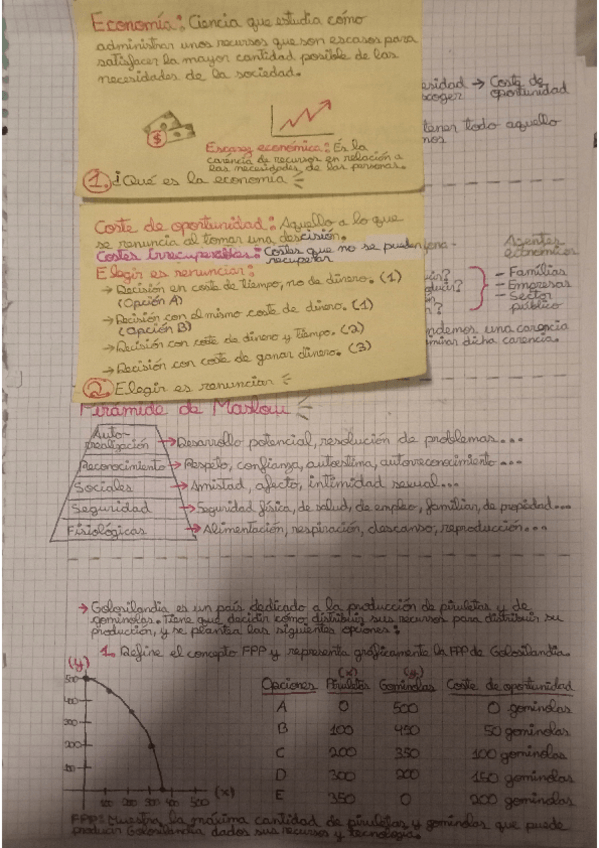 Economía: Ciencia que estudia cómo
administrar unos recursos que son escasos para
satisfacer la mayor cantidad posible de las
necesidades de la sociedad.
$
Escasez económica: Es la
carencia de recursos en relación a
las necesidades de las personas.
1. ¿Qué es la economía
esidad → Coste de
scoger oportunidad
tener todo aquello
mos.
Coste de oportunidad: Aquello a lo que
se renuncia al tomar una descisión.
Costes Irrecuperables: Costes que no se pueden
recuperar
Elegir es renunciar:
→ Decisión en coste de tiempo, no de dinero. (1)
(Opción A)
→ Decisión con el mismo coste de dinero. (1)
(Opción B)
→ Decisión con coste de dinero y tiempo. (2)
→ Decisión con coste de ganar dinero. (3)
2. Elegir es renunciar
Agentes
económicos
- Familias
- Empresas
- Sector
público
ndemos una carencia
minar dicha carencia.
Pirámide de Maslow
Auto-
realización → Desarrollo potencial, resolución de problemas...
Reconocimiento → Respeto, confianza, autoestima, autorreconocimiento...
Sociales → Amistad, afecto, intimidad sexual...
Seguridad → Seguridad física, de salud, de empleo, familiar, de propiedad...
Fisiológicas → Alimentación, respiración, descanso, reproducción...
→ Golosilandia es un país dedicado a la producción de piruletas y de
gominolas. Tiene que decidir cómo distribuir sus recursos para distribuir su
producción, y se plantea las siguientes opciones:
1. Define el concepto FPP y representa gráficamente la FPP de Golosilandia.
(y)
500
400
300
200
100
100 200 300 400 500 (x)
(x) (y)
Opciones Piruletas Gominolas Coste de oportunidad
A 0 500 0 gominolas
B 100 450 50 gominolas
C 200 350 100 gominolas
D 300 200 150 gominolas
E 350 0 200 gominolas
FPP: Muestra la máxima cantidad de piruletas y gominolas que puede
producir Golosilandia dados sus recursos y tecnología.